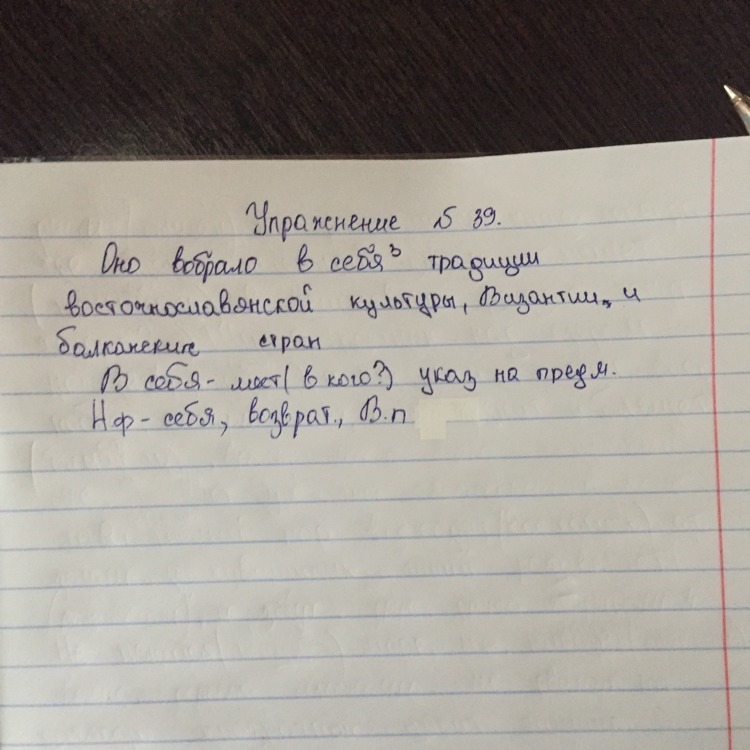 Упражнение № 39.
Оно вобрало в себя³ традиции
восточнославянской культуры, Византии, и
балканских стран
В себя - мест( в кого?) указ на предм.
Н ф - себя, возврат., В.п